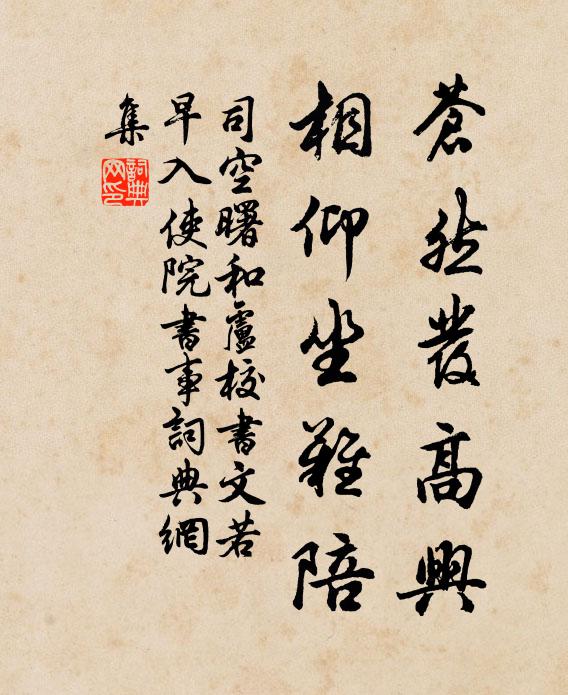 蒼然發高興
相仰坐難陪
司空曙和盧校書文若
早入使院書事詞典網
集
詞典网印